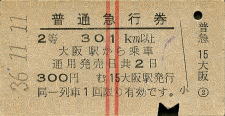 普通急行券
2等 301km以上
大阪駅から乗車
通用発売日共2日
300円 む15大阪駅発行
同一列車1回限り有効です。
36.11.11
普急
15
大阪
②
小